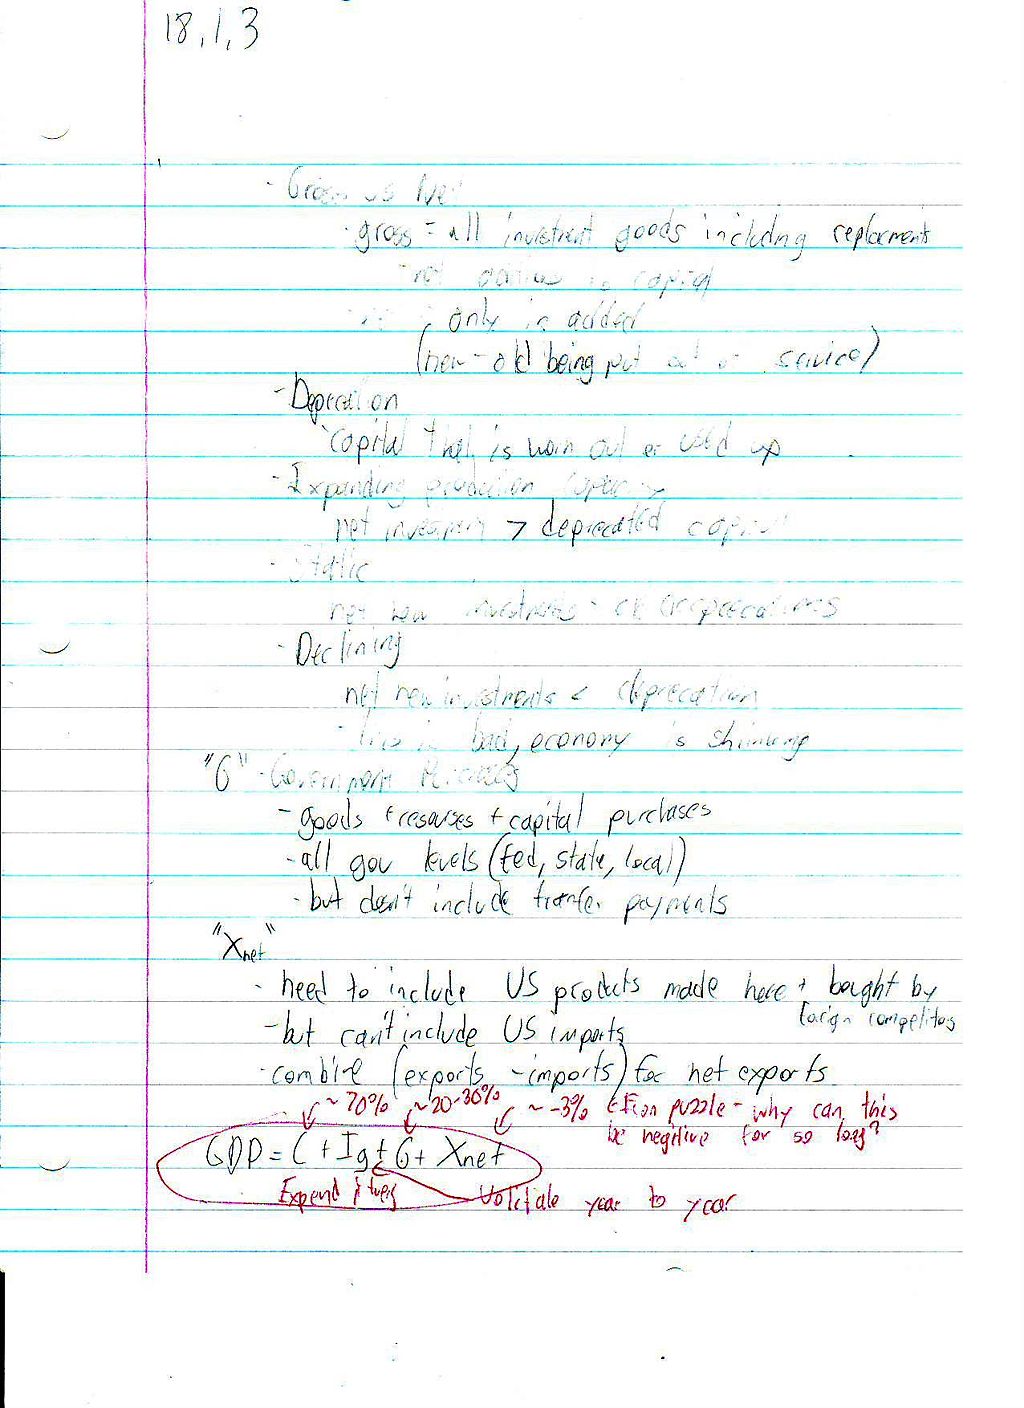 18.1.3
- Gross vs Net
- gross = all investment goods including replacments
- not
only in added
(new - old being put out of service)
- Deprecation
- capital that is worn out or used up
- Expanding production capacity
net investment > deprecated capital
- Static
net new investments = deprecations
- Declining
net new investments < deprecation
- this is bad, economy is shrinking
"G" - Government
- goods + resourses + capital purchases
- all gov levels (fed, state, local)
- but doesn't include tranfer payments
"Xnet"
- need to include US products made here + bought by
foreign competitors
- but can't include US imports
- combine (exports - imports) for net exports
~70% ~20-30% ~-3% Econ puzzle - why can this
be negitive for so long?
GDP = C + Ig + G + Xnet
Expenditures volitale year to year